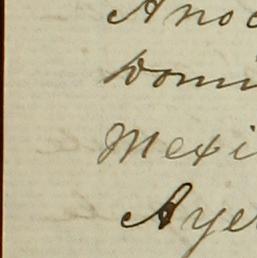 Anoc
Domi
Mexi
Aye